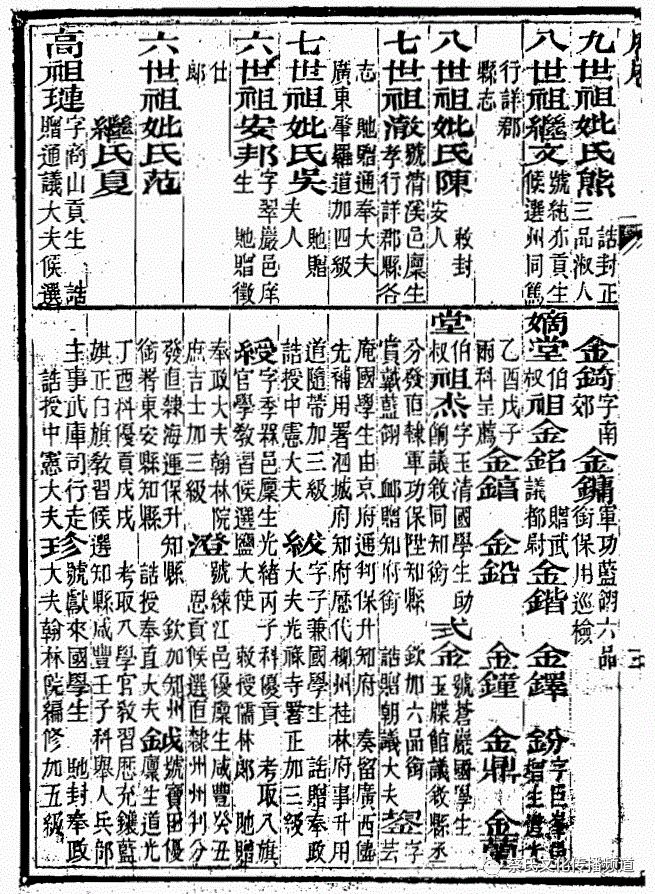 九世祖妣氏熊 誥封正三品淑人
八世祖繼文 號純亦貢生候選州同篤
行詳郡縣志
八世祖妣氏陳 敕封安人
七世祖澂 號清溪邑廩生孝行詳郡縣各
志 貤贈通奉大夫廣東肇羅道加四級
七世祖妣氏吳 貤贈夫人
六世祖安邦 字翠巖邑庠生 貤贈徵
仕郎
六世祖妣氏范
繼氏夏
高祖璉 字商山貢生 誥贈通議大夫候選
金錡 字南郊 金鏞 軍功藍翎六品銜保用巡檢
嫡堂伯叔祖金銘 贈武議都尉 金鍇 金鐸 鈖
乙酉戊子兩科呈薦 金鎬 金鉛 金鐘 金鼎 金蘭
堂伯叔祖杰 字玉清國學生助餉議敘同知銜 式金 號蒼巖國學生玉牒館議敘縣丞
分發直隸軍功保陞知縣 欽加六品銜賞戴藍翎 卹贈知府銜 誥贈朝議大夫 字芸
庵國學生由京府通判保升知府 奏留廣西儘先補用署泗城府知府歷代柳州桂林府事升用
道隨帶加三級 誥贈奉政誥授中憲大夫 紱 字子兼國學生大夫光祿寺署正加三級
綬 字季霖邑廩生光緒丙子科優貢 考取八旗官學教習候選鹽大使 敕授儒林郎 貤贈
奉政大夫翰林院庶吉士加三級 澄 號練江邑優廩生咸豐癸丑恩貢候選直隸州州判分
發直隸海運保升知縣 欽加知州銜署東安縣知縣 誥授奉直大夫 鉞 號寶田優廩生道光
丁酉科優貢戊戌 考取八學官教習歷充鑲藍旗正白旗教習候選知縣咸豐壬子科舉人兵部
主事武庫司行走 誥授中憲大夫 珍 號獻來國學生 貤封奉政大夫翰林院編修加五級
蔡氏文化传播频道